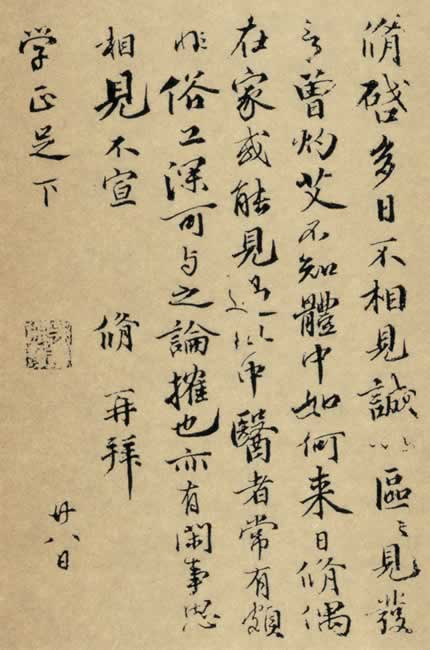 脩启多日不相見誠以區區見發
言曾灼艾不知體中如何来日脩偶
在家或能見過此中醫者常有頗
非俗工深可与之論搉也亦有閑事思
相見不宣 脩再拜
廿八日
学正足下